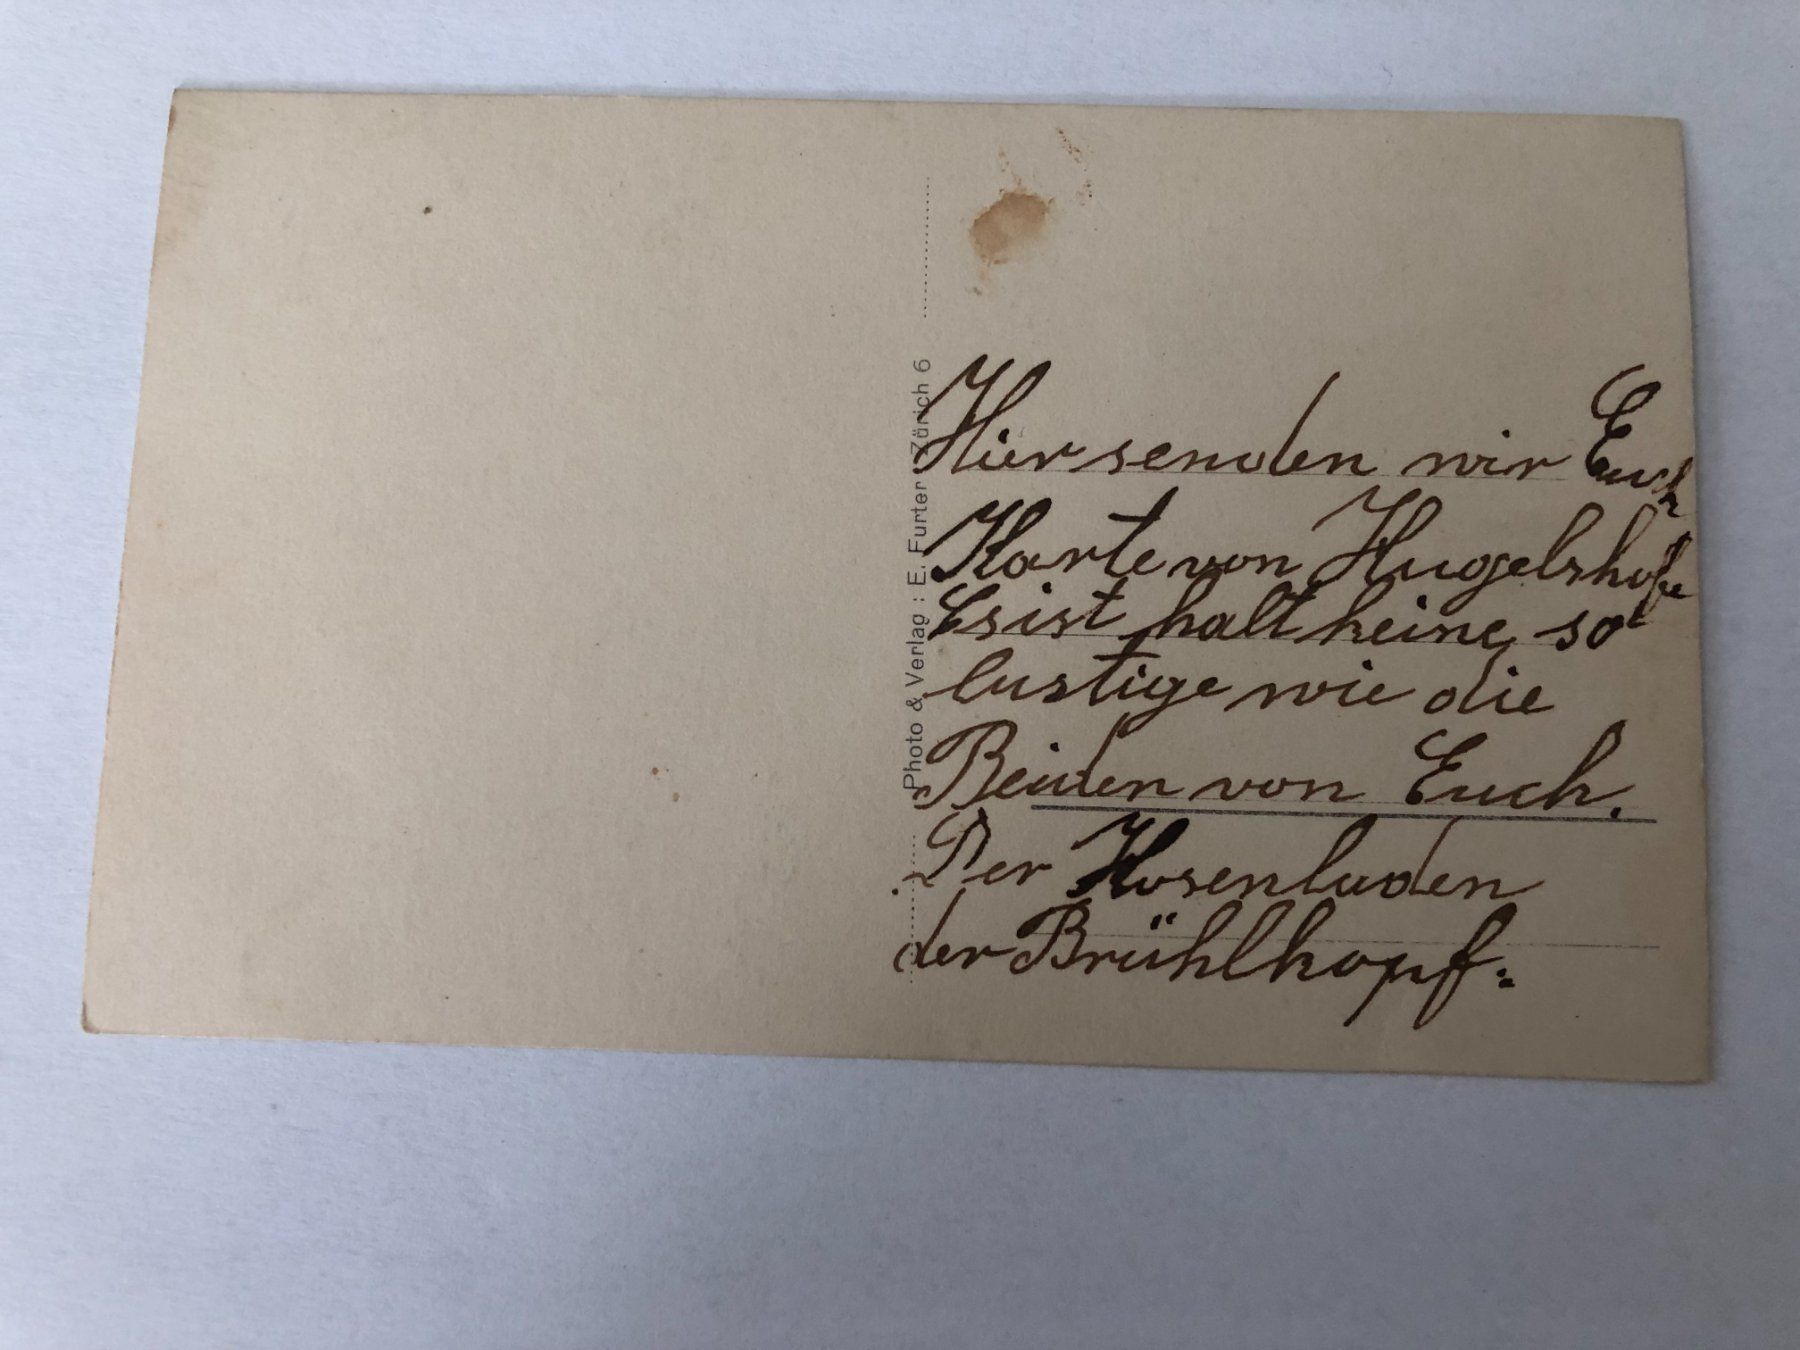 Photo & Verlag : E. Furter Zürich 6
Hier senden wir Euch
Karte von Hugelshofe
Es ist halt keine so
lustige wie die
Beiden von Euch.
Der Hosenladen
der Brühlkopf.